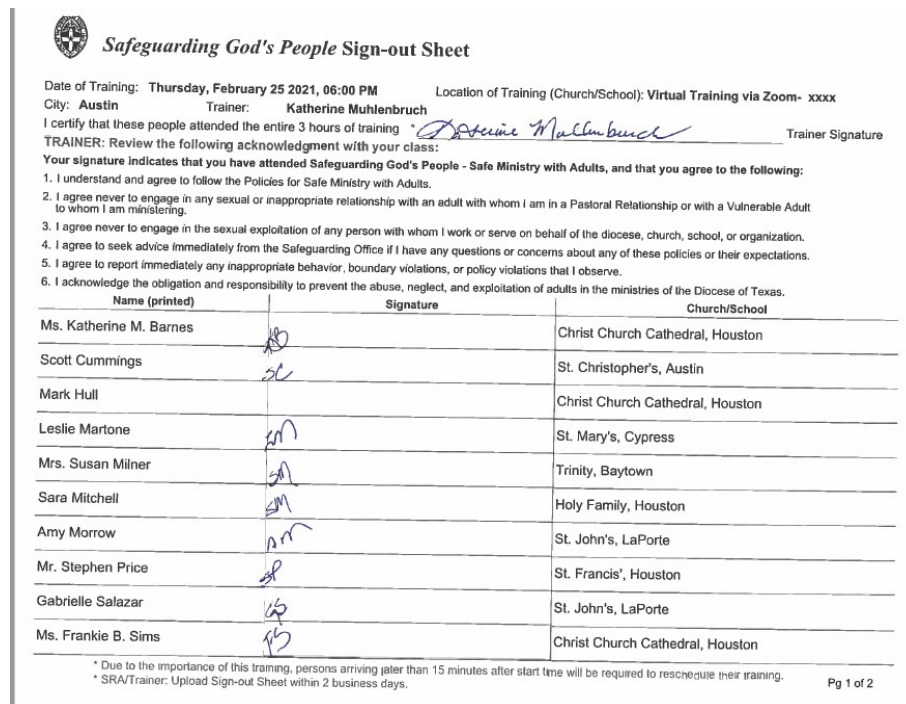 Safeguarding God's People Sign-out Sheet
Date of Training: Thursday, February 25 2021, 06:00 PM Location of Training (Church/School): Virtual Training via Zoom- xxxx
City: Austin Trainer: Katherine Muhlenbruch
I certify that these people attended the entire 3 hours of training * Katherine Muhlenbruch Trainer Signature
TRAINER: Review the following acknowledgment with your class:
Your signature indicates that you have attended Safeguarding God's People - Safe Ministry with Adults, and that you agree to the following:
1. I understand and agree to follow the Policies for Safe Ministry with Adults.
2. I agree never to engage in any sexual or inappropriate relationship with an adult with whom I am in a Pastoral Relationship or with a Vulnerable Adult
to whom I am ministering.
3. I agree never to engage in the sexual exploitation of any person with whom I work or serve on behalf of the diocese, church, school, or organization.
4. I agree to seek advice immediately from the Safeguarding Office if I have any questions or concerns about any of these policies or their expectations.
5. I agree to report immediately any inappropriate behavior, boundary violations, or policy violations that I observe.
6. I acknowledge the obligation and responsibility to prevent the abuse, neglect, and exploitation of adults in the ministries of the Diocese of Texas.
Name (printed) Signature Church/School
Ms. Katherine M. Barnes KB Christ Church Cathedral, Houston
Scott Cummings SC St. Christopher's, Austin
Mark Hull Christ Church Cathedral, Houston
Leslie Martone LM St. Mary's, Cypress
Mrs. Susan Milner SM Trinity, Baytown
Sara Mitchell SM Holy Family, Houston
Amy Morrow AM St. John's, LaPorte
Mr. Stephen Price SP St. Francis', Houston
Gabrielle Salazar GS St. John's, LaPorte
Ms. Frankie B. Sims FS Christ Church Cathedral, Houston
* Due to the importance of this training, persons arriving later than 15 minutes after start time will be required to reschedule their training.
* SRA/Trainer: Upload Sign-out Sheet within 2 business days. Pg 1 of 2